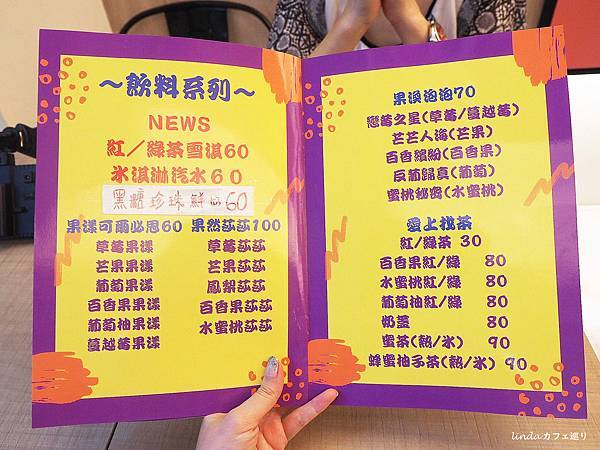 ～飲料系列～
NEWS
紅／綠茶雪淇60
冰淇淋汽水60
黑糖珍珠鮮奶60
果漾可爾必思60 果然莎莎100
草莓果漾 草莓莎莎
芒果果漾 芒果莎莎
葡萄果漾 鳳梨莎莎
百香果果漾 百香果莎莎
葡萄柚果漾 水蜜桃莎莎
蔓越莓果漾
果漾泡泡70
戀莓之星(草莓/蔓越莓)
芒芒人海(芒果)
百香繽紛(百香果)
反葡歸真(葡萄)
蜜桃秘密(水蜜桃)
愛上找茶
紅/綠茶 30
百香果紅/綠 80
水蜜桃紅/綠 80
葡萄柚紅/綠 80
奶蓋 80
蜜茶(熱/冰) 90
蜂蜜柚子茶(熱/冰) 90
lindaカフェ巡り